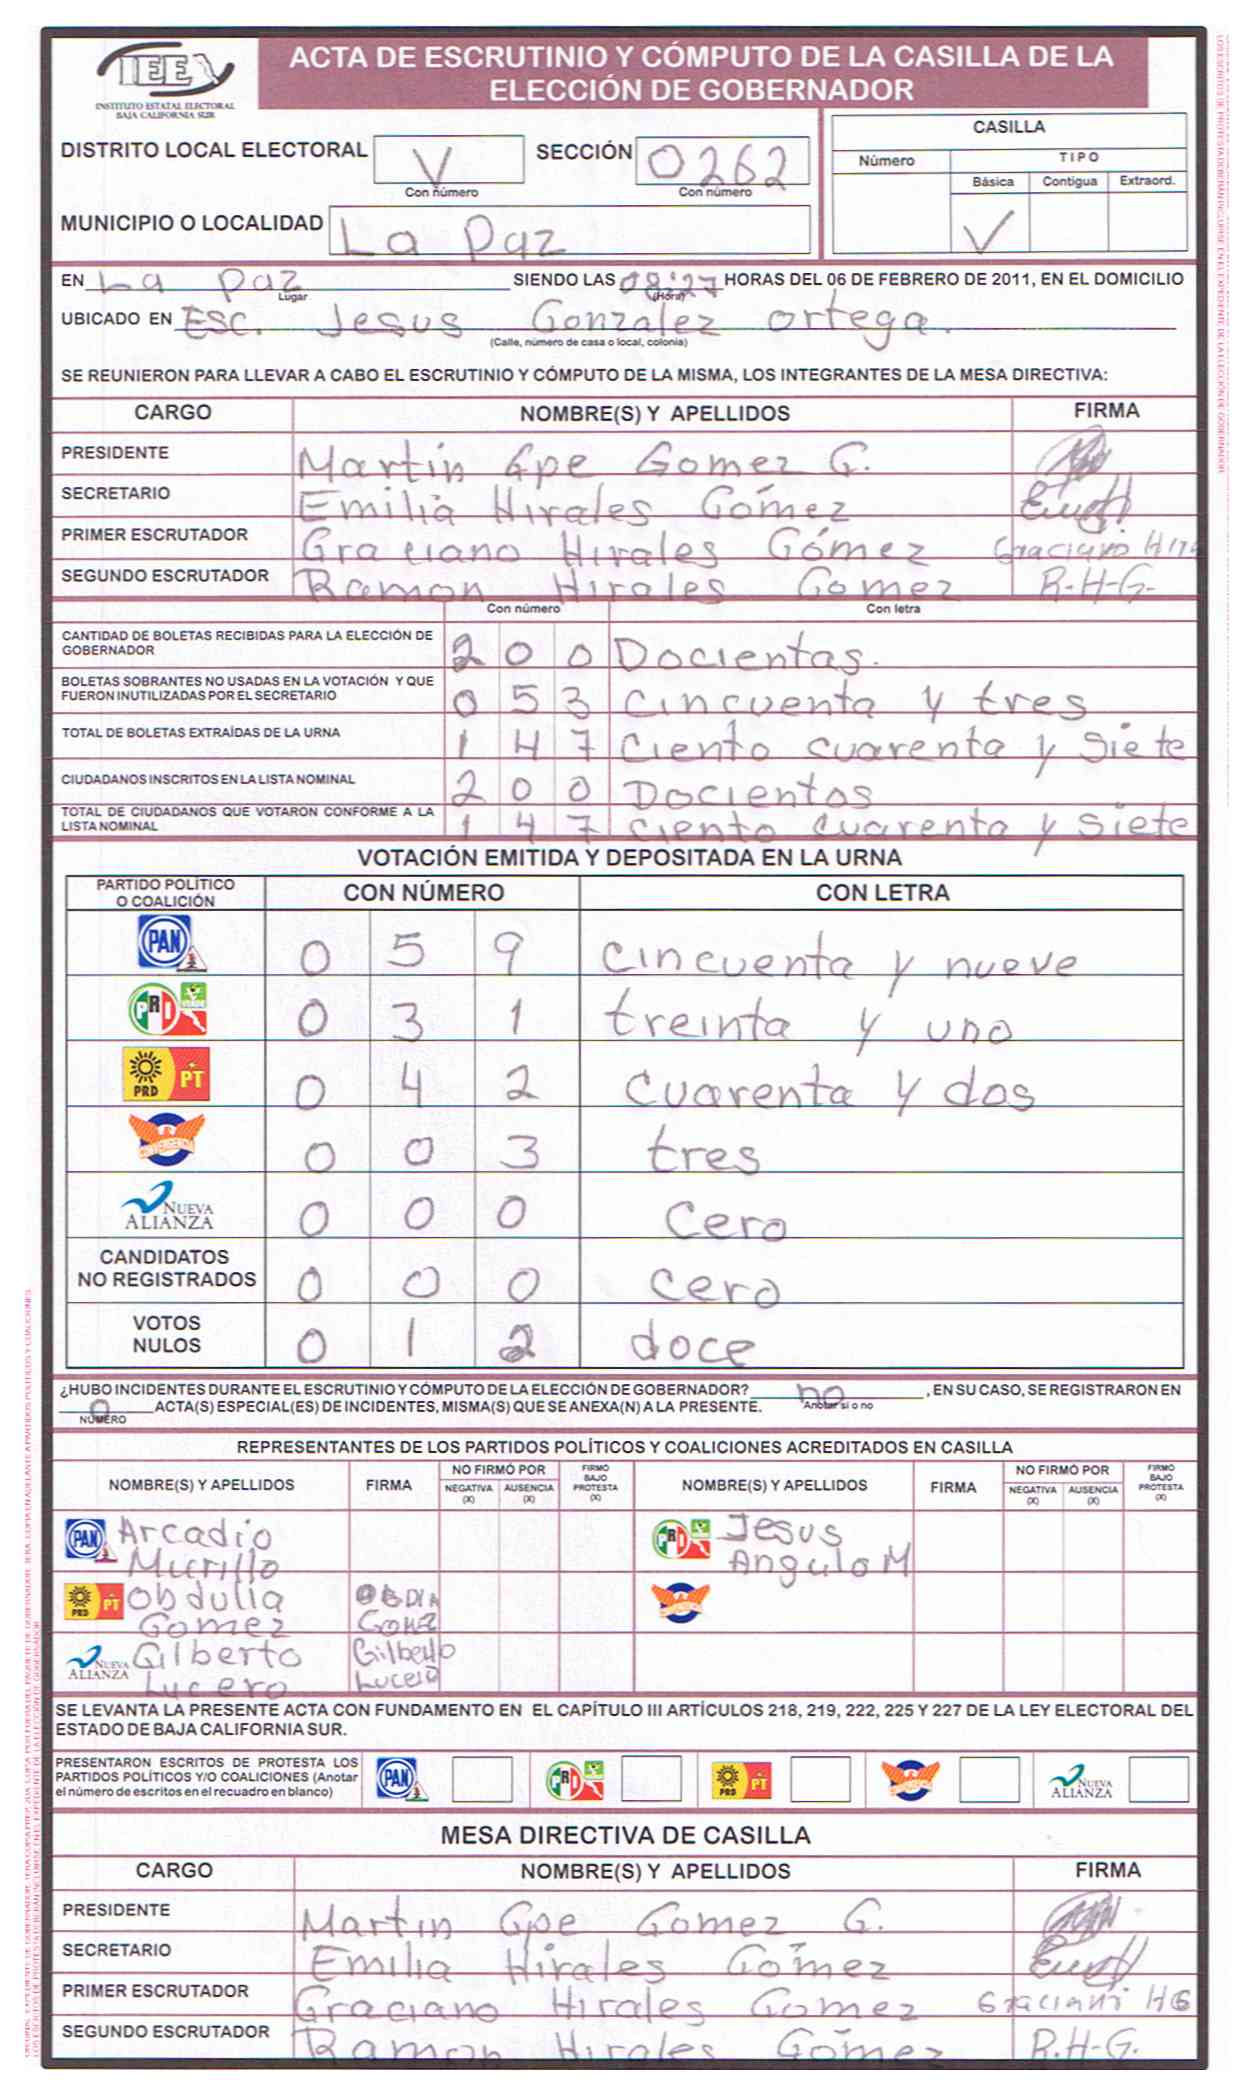 IEE
INSTITUTO ESTATAL ELECTORAL
BAJA CALIFORNIA SUR
ACTA DE ESCRUTINIO Y CÓMPUTO DE LA CASILLA DE LA
ELECCIÓN DE GOBERNADOR
DISTRITO LOCAL ELECTORAL V SECCIÓN 0262
Con número Con número
MUNICIPIO O LOCALIDAD La Paz
CASILLA
Número TIPO
Básica Contigua Extraord.
EN La Paz SIENDO LAS 08:27 HORAS DEL 06 DE FEBRERO DE 2011, EN EL DOMICILIO
Lugar (Hora)
UBICADO EN ESC. Jesus Gonzalez ortega.
(Calle, número de casa o local, colonia)
SE REUNIERON PARA LLEVAR A CABO EL ESCRUTINIO Y CÓMPUTO DE LA MISMA, LOS INTEGRANTES DE LA MESA DIRECTIVA:
CARGO NOMBRE(S) Y APELLIDOS FIRMA
PRESIDENTE Martin Gpe Gomez G.
SECRETARIO Emilia Hirales Gómez
PRIMER ESCRUTADOR Graciano Hirales Gómez
SEGUNDO ESCRUTADOR Ramon Hirales Gomez R.H-G.
Con número Con letra
CANTIDAD DE BOLETAS RECIBIDAS PARA LA ELECCIÓN DE
GOBERNADOR 2 0 0 Docientas.
BOLETAS SOBRANTES NO USADAS EN LA VOTACIÓN Y QUE
FUERON INUTILIZADAS POR EL SECRETARIO 0 5 3 Cincuenta y tres
TOTAL DE BOLETAS EXTRAÍDAS DE LA URNA 1 4 7 Ciento cuarenta y siete
CIUDADANOS INSCRITOS EN LA LISTA NOMINAL 2 0 0 Docientos
TOTAL DE CIUDADANOS QUE VOTARON CONFORME A LA
LISTA NOMINAL 1 4 7 Ciento cuarenta y siete
VOTACIÓN EMITIDA Y DEPOSITADA EN LA URNA
PARTIDO POLÍTICO
O COALICIÓN CON NÚMERO CON LETRA
PAN 0 5 9 cincuenta y nueve
PRI VERDE 0 3 1 treinta y uno
PRD PT 0 4 2 cuarenta y dos
CONVERGENCIA 0 0 3 tres
NUEVA ALIANZA 0 0 0 cero
CANDIDATOS
NO REGISTRADOS 0 0 0 cero
VOTOS
NULOS 0 1 2 doce
¿HUBO INCIDENTES DURANTE EL ESCRUTINIO Y CÓMPUTO DE LA ELECCIÓN DE GOBERNADOR? no , EN SU CASO, SE REGISTRARON EN
0 ACTA(S) ESPECIAL(ES) DE INCIDENTES, MISMA(S) QUE SE ANEXA(N) A LA PRESENTE. Anotar si o no
NÚMERO
REPRESENTANTES DE LOS PARTIDOS POLÍTICOS Y COALICIONES ACREDITADOS EN CASILLA
NOMBRE(S) Y APELLIDOS FIRMA NO FIRMÓ POR NEGATIVA (X) AUSENCIA (X) FIRMÓ BAJO PROTESTA (X) NOMBRE(S) Y APELLIDOS FIRMA NO FIRMÓ POR NEGATIVA (X) AUSENCIA (X) FIRMÓ BAJO PROTESTA (X)
PAN Arcadio Murillo PRI Jesus Angulo M
PRD PT Obdulia Gomez
NUEVA ALIANZA Gilberto Lucero Gilberto Lucero
SE LEVANTA LA PRESENTE ACTA CON FUNDAMENTO EN EL CAPÍTULO III ARTÍCULOS 218, 219, 222, 225 Y 227 DE LA LEY ELECTORAL DEL
ESTADO DE BAJA CALIFORNIA SUR.
PRESENTARON ESCRITOS DE PROTESTA LOS
PARTIDOS POLÍTICOS Y/O COALICIONES (Anotar
el número de escritos en el recuadro en blanco) PAN PRI PRD PT NUEVA ALIANZA
MESA DIRECTIVA DE CASILLA
CARGO NOMBRE(S) Y APELLIDOS FIRMA
PRESIDENTE Martin Gpe Gomez G.
SECRETARIO Emilia Hirales Gómez
PRIMER ESCRUTADOR Graciano Hirales Gomez
SEGUNDO ESCRUTADOR Ramon Hirales Gómez R.H-G.